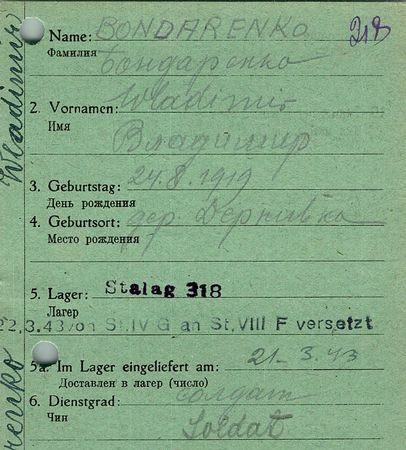 Name: BONDARENKO 218
Фамилия Бондаренко
2. Vornamen: Wladimir
Имя Владимир
3. Geburtstag: 24.8.1919
День рождения
4. Geburtsort: дер.
Место рождения
5. Lager: Stalag 318
Лагер
22.3.43 von St.IV G an St.VIII F versetzt
5a. Im Lager eingeliefert am: 21-3.43
Доставлен в лагер (число)
6. Dienstgrad: Солдат
Чин Soldat
Wladimir
renko